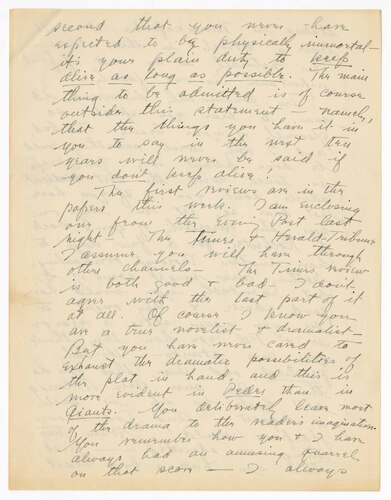 second that you never have
expected to be physically immortal—
it's your plain duty to keep
alive as long as possible. The main
thing to be admitted is of course
outside this statement — namely,
that the things you have it in
you to say in the next ten
years will never be said if
you don't keep alive!
The first reviews are in the
papers this week. I am enclosing
one from the Evening Post last
night — The Times & Herald-Tribune
I assume you will have through
other channels — The Times review
is both good & bad. I don't
agree with the last part of it
at all. Of course I know you
are a true novelist & dramatist—
But you have never cared to
exhaust the dramatic possibilities of
the plot in hand and this is
more evident in Peder than in
Giants. You deliberately leave most
of the drama to the reader's imagination.
You remember how you & I have
always had an amusing quarrel
on that score — I always